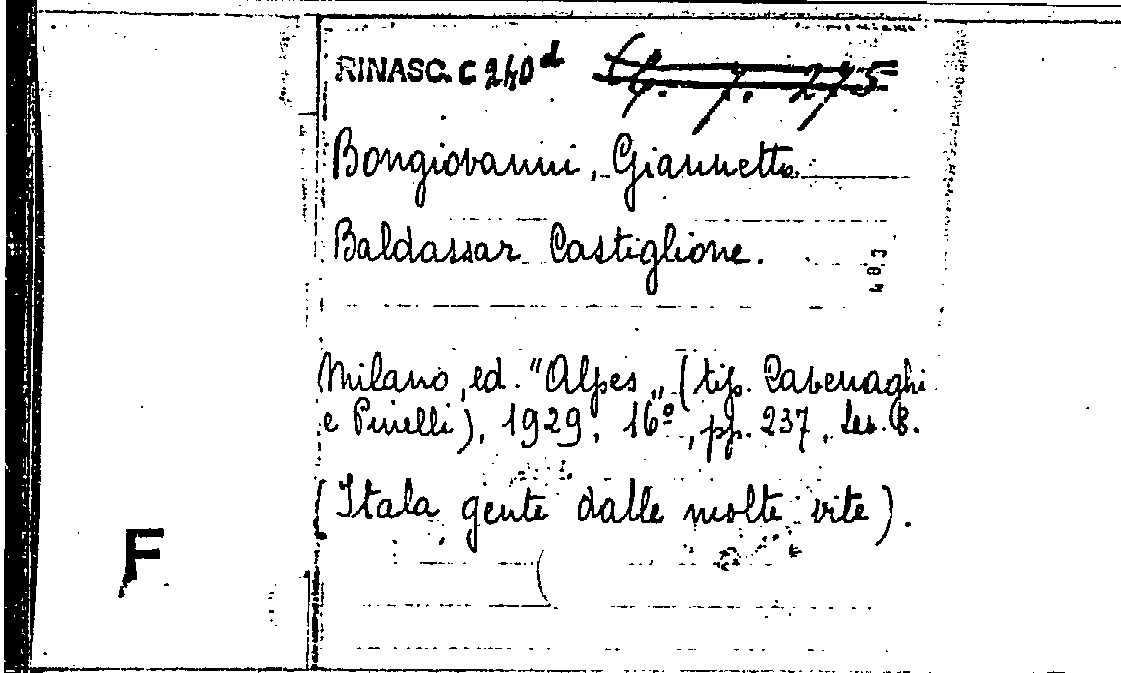 RINASC. C 240d
Bongiovanni, Giannetto.
Baldassar Castiglione.
Milano, ed. "Alpes", (tip. Cavenaghi
e Pinelli), 1929, 16º, pp. 237,
(Itala gente dalle molte vite).
F